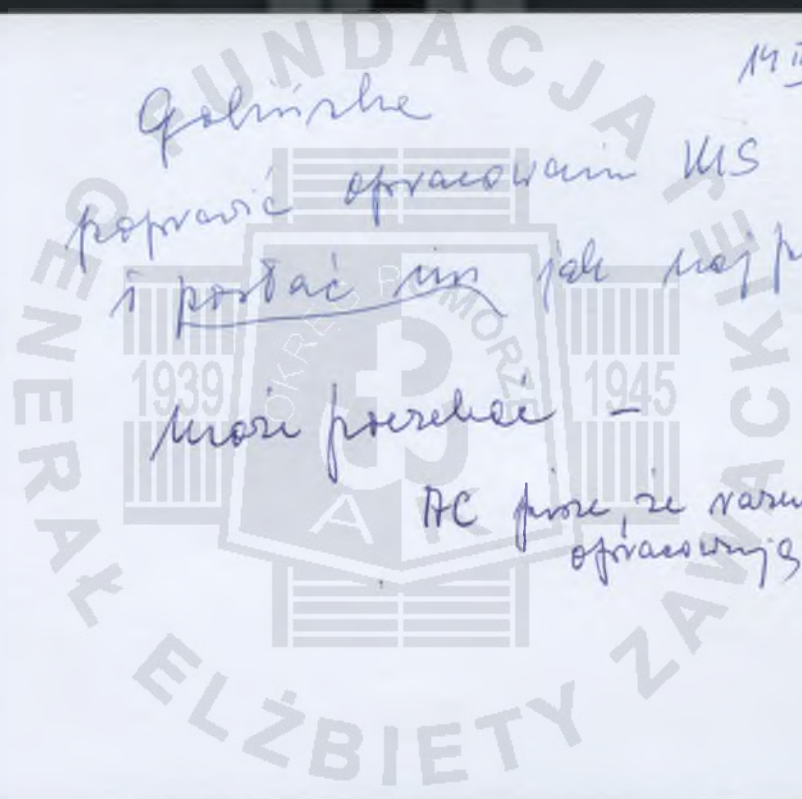 14 II
Golińska
poprawić opracowanie WS
i posłać im jak najp
może poczekać –
AC pisze, że razem
opracowują
FUNDACJA
GENERAŁ ELŻBIETY ZAWACKIEJ
OKRĘG POMORZE
1939 1945
AK